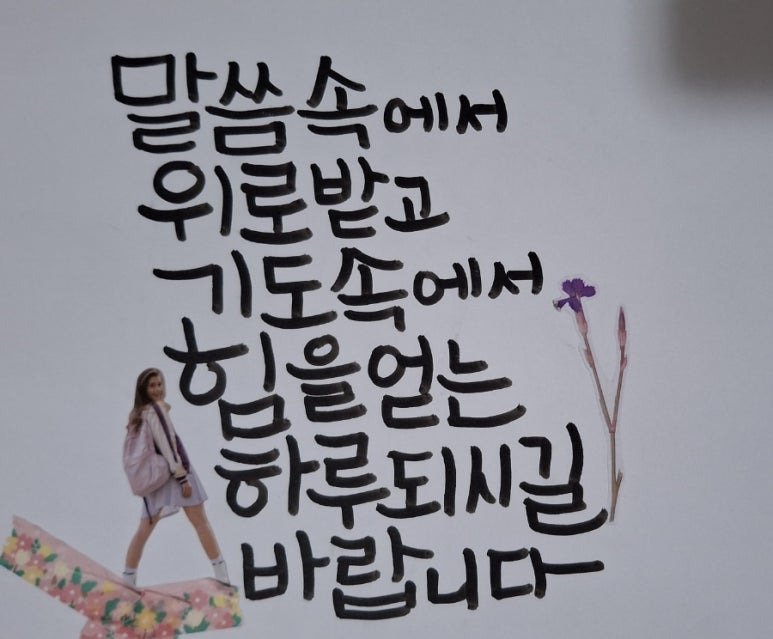 말씀속에서
위로받고
기도속에서
힘을얻는
하루되시길
바랍니다